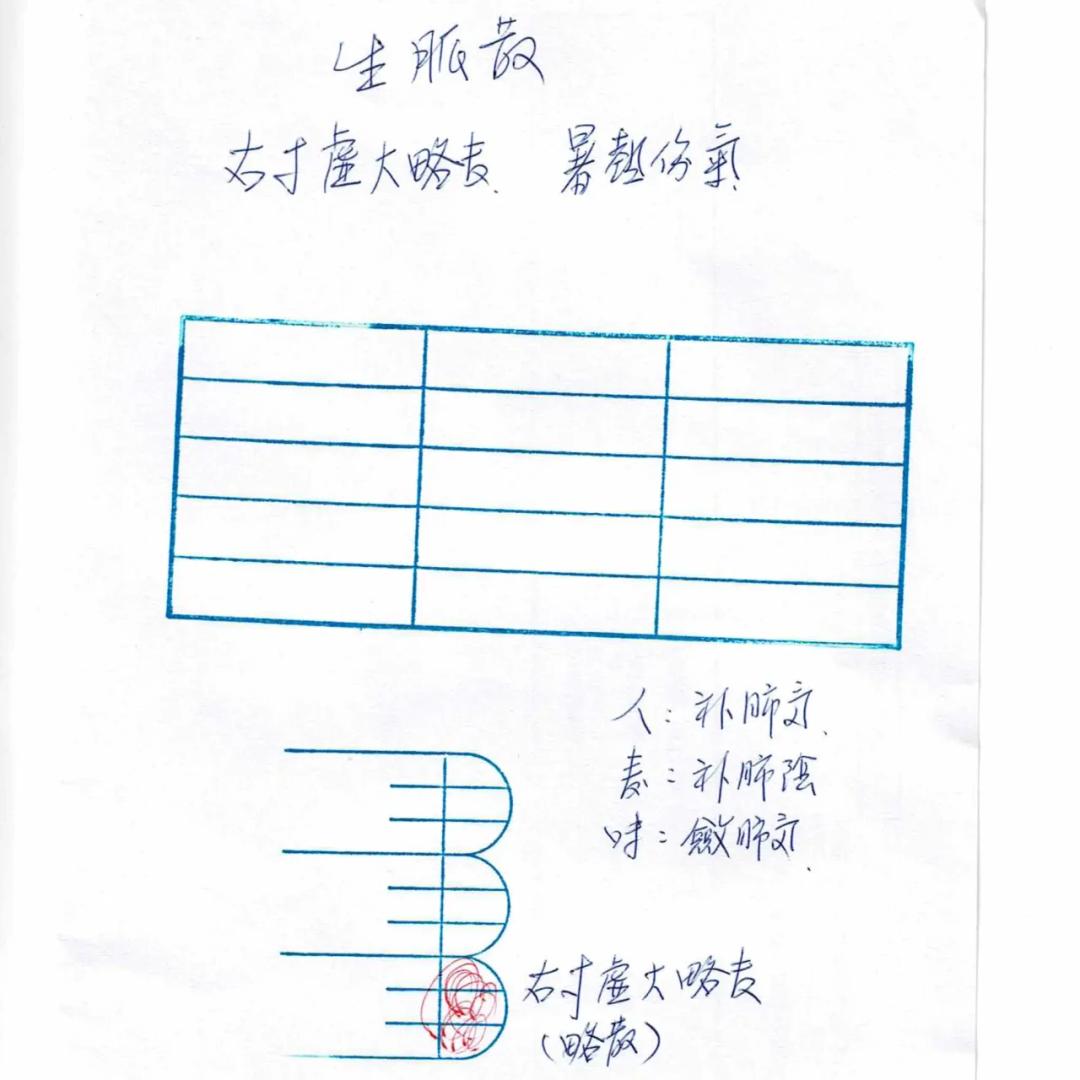 生脈散
右寸虛大略 暑熱伤氣
人：补肺气
麦：补肺陰
味：斂肺气
右寸虛大略
（略散）